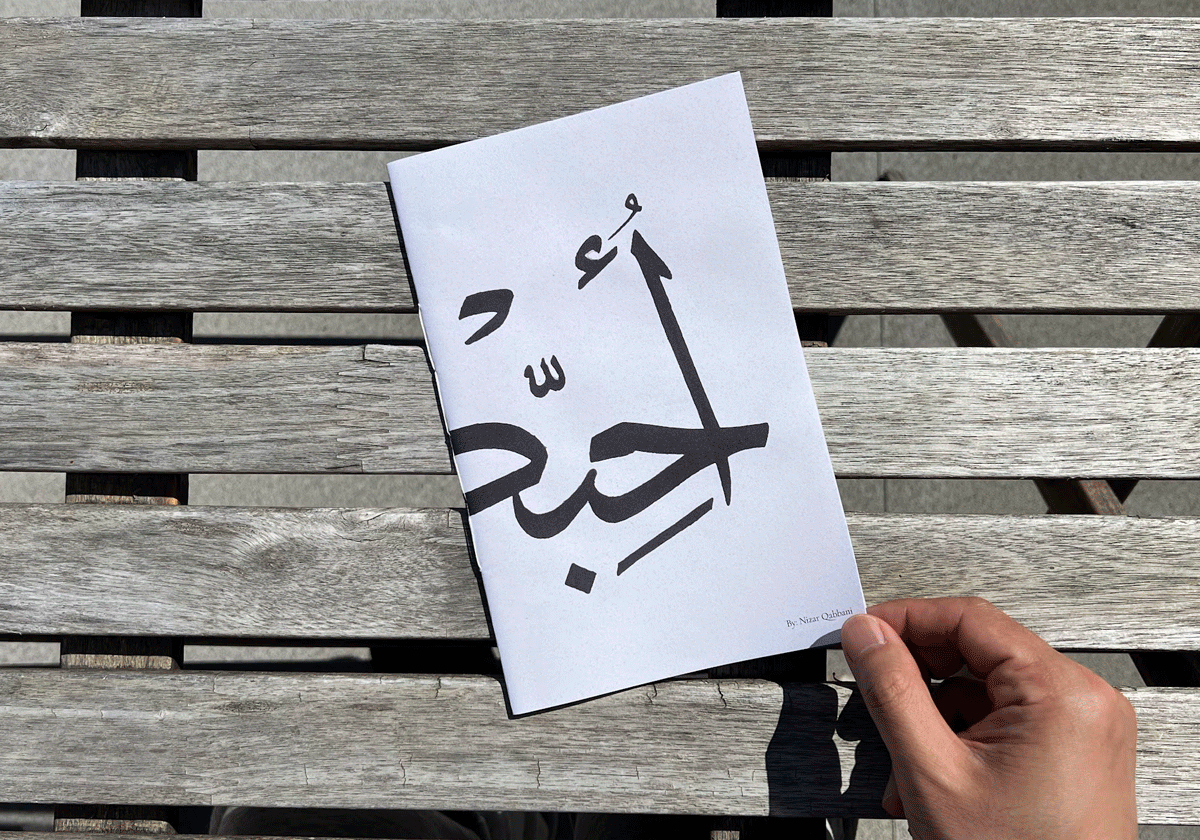 أُحِبّك
By: Nizar Qabbani